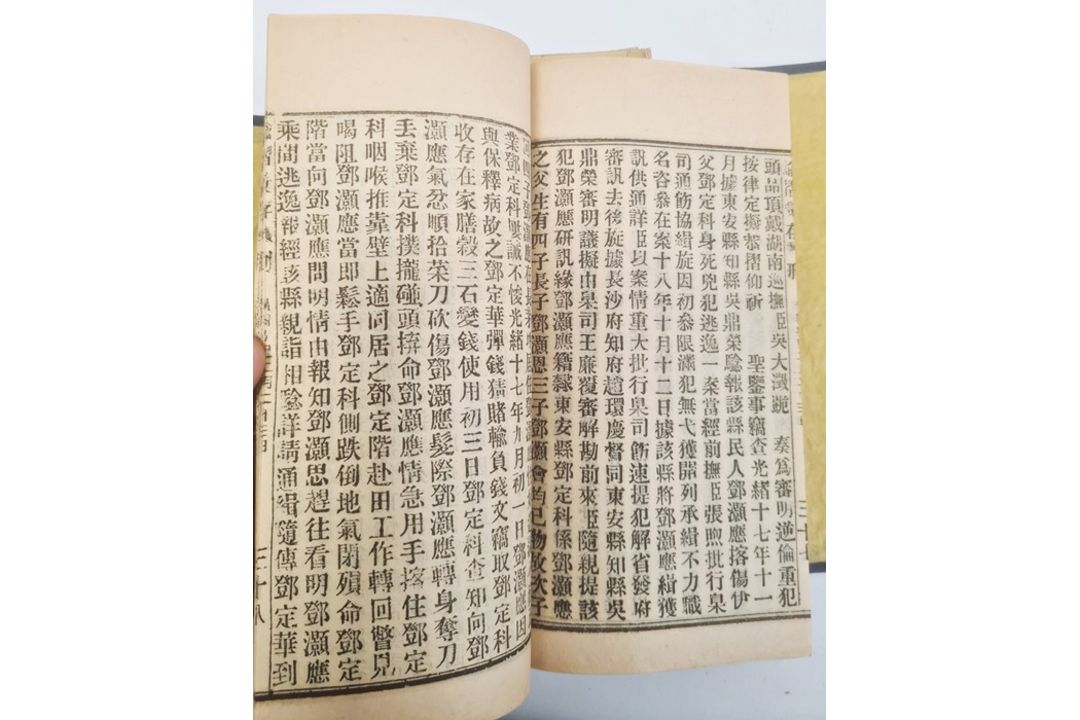 頭品頂戴湖南巡撫臣吳大澂跪 奏爲審明逆倫重犯
按律定擬恭摺仰祈 聖鑒事竊查光緒十七年十一
月據東安縣知縣吳鼎榮驗報該縣民人鄧灝應搭傷伊
父鄧定科身死兇犯逃逸一案當經前撫臣張煦批行臬
司通飭協緝旋因初叅限滿犯無弋獲開列承緝不力職
名咨叅在案十八年十月十二日據該縣將鄧灝應緝獲
訊供通詳臣以案情重大批行臬司飭速提犯解省發府
審訊去後旋據長沙府知府趙環慶督同東安縣知縣吳
鼎榮審明議擬由臬司王廉覆審解勘前來臣隨親提該
犯鄧灝應研訊緣鄧灝應籍隸東安縣鄧定科係鄧灝應
之父生有四子長子鄧灝恩三子鄧灝會均已物故次子
四子鄧灝
業鄧定科屢誡不悛光緒十七年九月初一日鄧灝應因
與保釋病故之鄧定華彈錢猜賭輸負錢文竊取鄧定科
收存在家膳穀三石變錢使用初三日鄧定科查知向鄧
灝應氣忿順拾菜刀砍傷鄧灝應髮際鄧灝應轉身奪刀
丢棄鄧定科撲攏碰頭拚命鄧灝應情急用手搭住鄧定
科咽喉推靠壁上適同居之鄧定階赴田工作轉回瞥見
喝阻鄧灝應當即鬆手鄧定科側跌倒地氣閉殞命鄧定
階當向鄧灝應問明情由報知鄧灝思趕往看明鄧灝應
乘間逃逸報經該縣親詣相驗詳請通緝隨傳鄧定華到
三十八